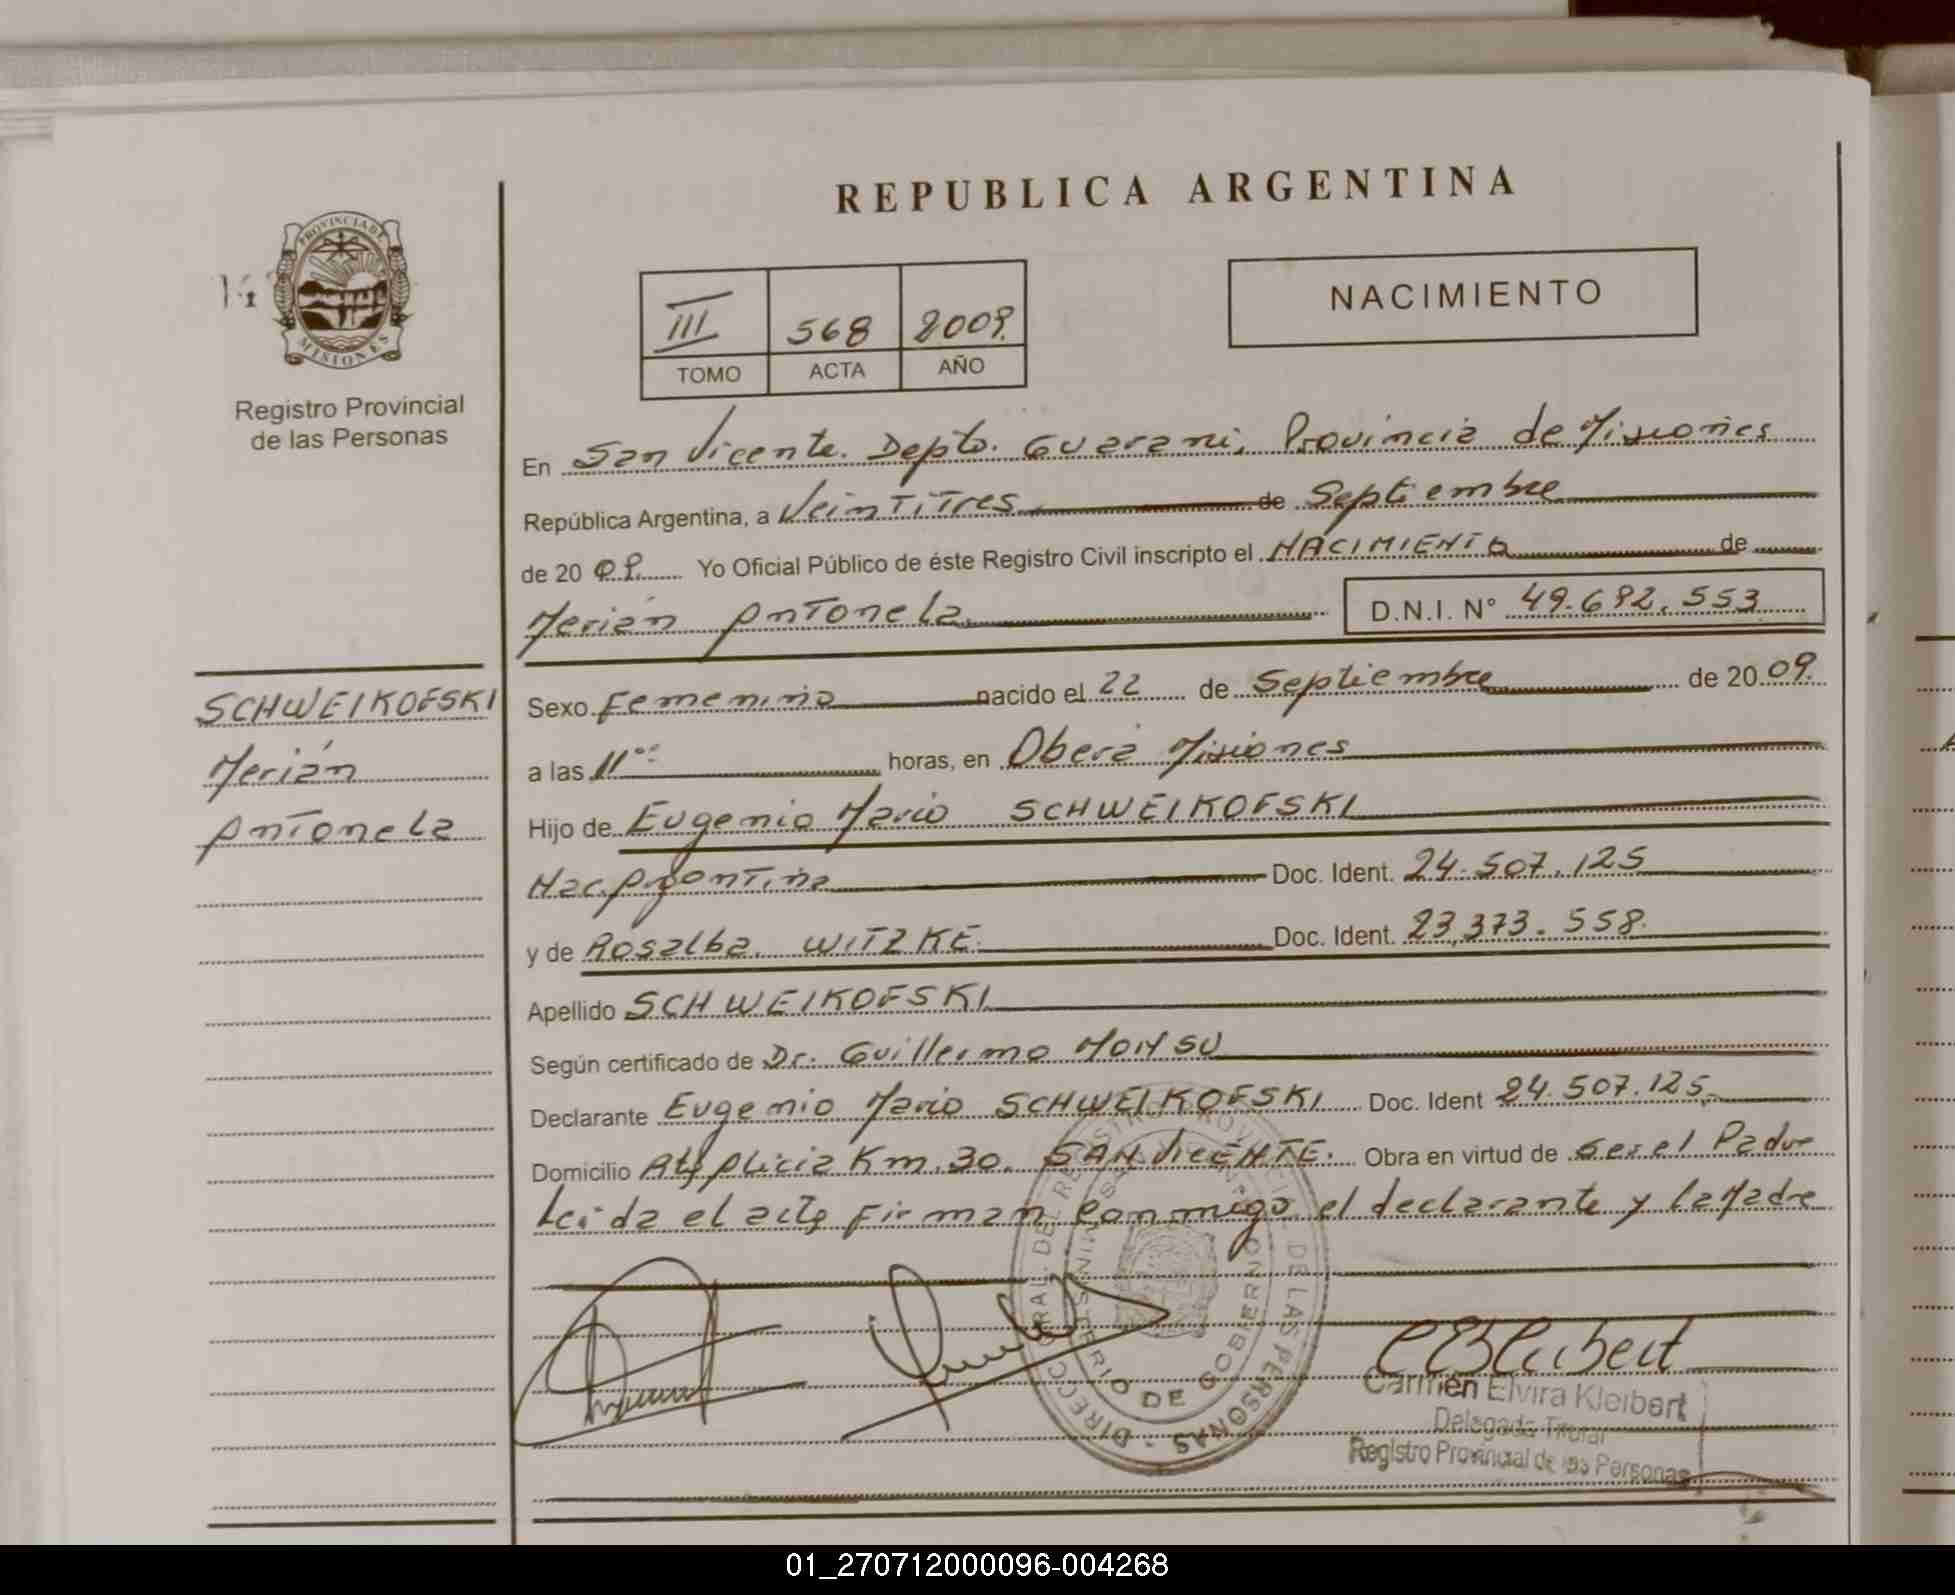 REPUBLICA ARGENTINA
PROVINCIA DE
MISIONES
Registro Provincial
de las Personas
III 568 2009
TOMO ACTA AÑO
NACIMIENTO
En San Vicente. Depto. Guarani, Provincia de Misiones
República Argentina, a Veintitres de Septiembre
de 20 09 Yo Oficial Público de éste Registro Civil inscripto el NACIMIENTO de
Merián Antonela D.N.I. N° 49.692.553
SCHWEIKOFSKI
Merián
Antonela
Sexo Femenino nacido el 22 de Septiembre de 20 09.
a las 11°° horas, en Oberá Misiones
Hijo de Eugenio Mario SCHWEIKOFSKI
Nac. Argentina Doc. Ident. 24.507.125
y de Rosalba WITZKE. Doc. Ident. 23.373.558.
Apellido SCHWEIKOFSKI
Según certificado de Dr. Guillermo MONSU
Declarante Eugenio Mario SCHWEIKOFSKI Doc. Ident 24.507.125.
Domicilio Alicia Km.30. SAN VICENTE. Obra en virtud de ser el Padre
Leida el acta Firman conmigo el declarante y la Madre
DIRECC. GRAL. DEL REGISTRO PROVINCIAL DE LAS PERSONAS
MINISTERIO DE GOBIERNO
Carmen Elvira Kleibert
Delegada Titular
Registro Provincial de las Personas
01_270712000096-004268